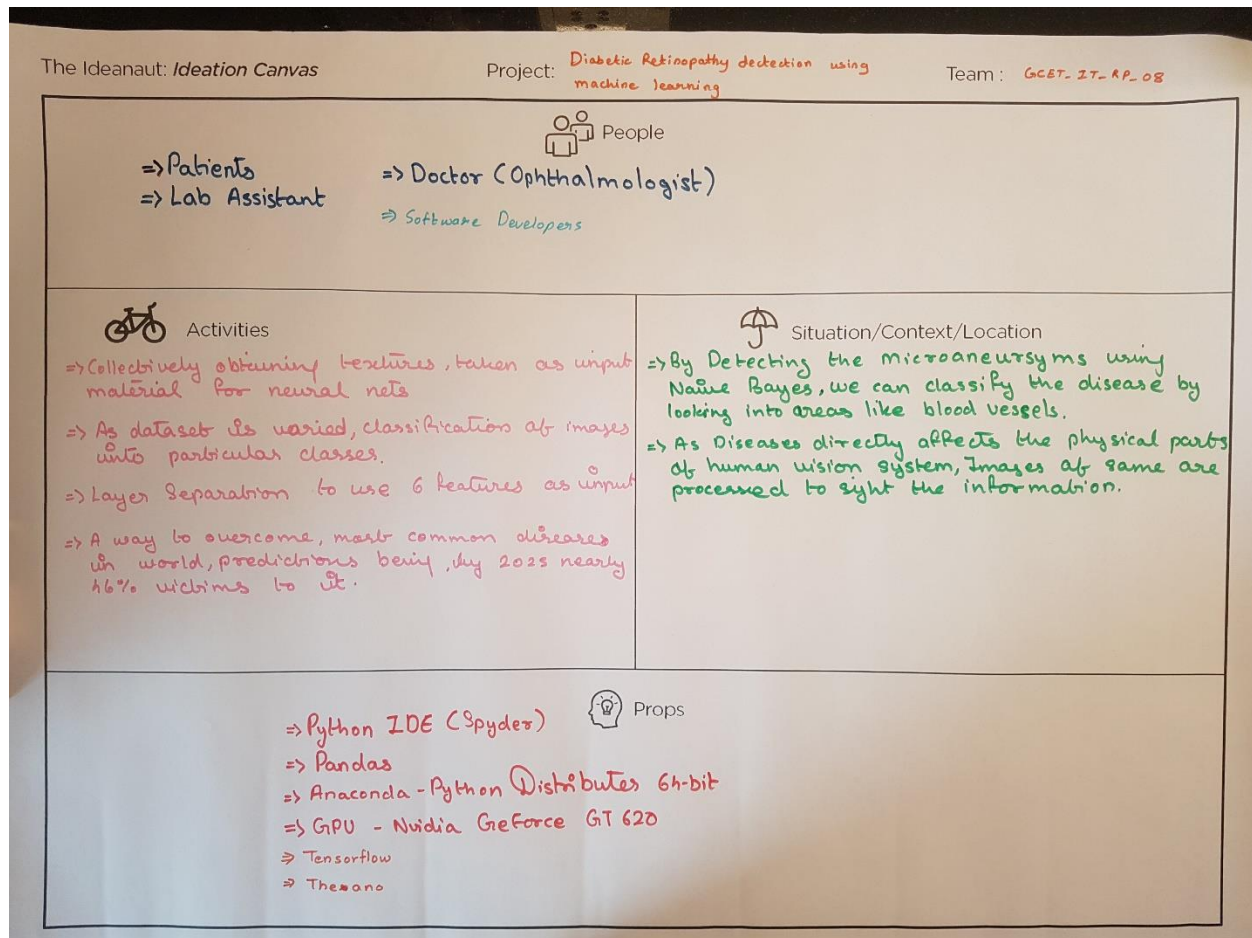 The Ideanaut: Ideation Canvas
Project: Diabetic Retinopathy dectection using
machine learning
Team : GCET_IT_RP_08
People
=> Patients
=> Lab Assistant
=> Doctor (Ophthalmologist)
=> Software Developers
Activities
=> Collectively obtaining textures, taken as input
material for neural nets
=> As dataset is varied, classification of images
into particular classes.
=> Layer Separation to use 6 features as input
=> A way to overcome, most common diseases
in world, predictions being, by 2025 nearly
46% victims to it.
Situation/Context/Location
=> By Detecting the microaneursyms using
Naive Bayes, we can classify the disease by
looking into areas like blood vessels.
=> As Diseases directly affects the physical parts
of human vision system, Images of same are
processed to sight the information.
Props
=> Python IDE (Spyder)
=> Pandas
=> Anaconda - Python Distributes 64-bit
=> GPU - Nvidia GeForce GT 620
=> Tensorflow
=> Theano